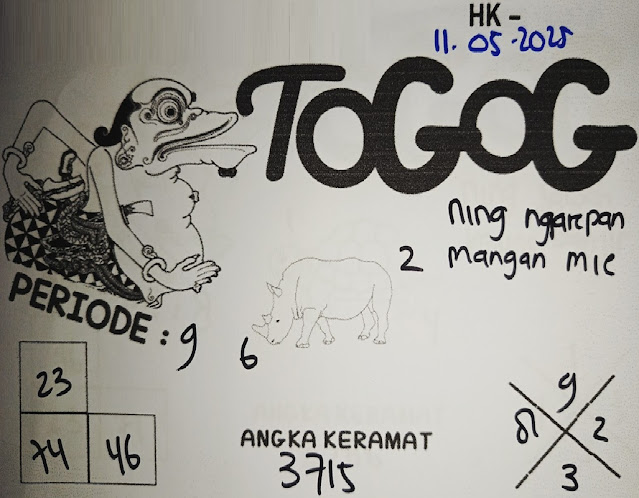 HK -
11.05.2025
TOGOG
ning ngarepan
2 mangan mie
PERIODE : 9
6
23
74 46
ANGKA KERAMAT
3715
9
2
3